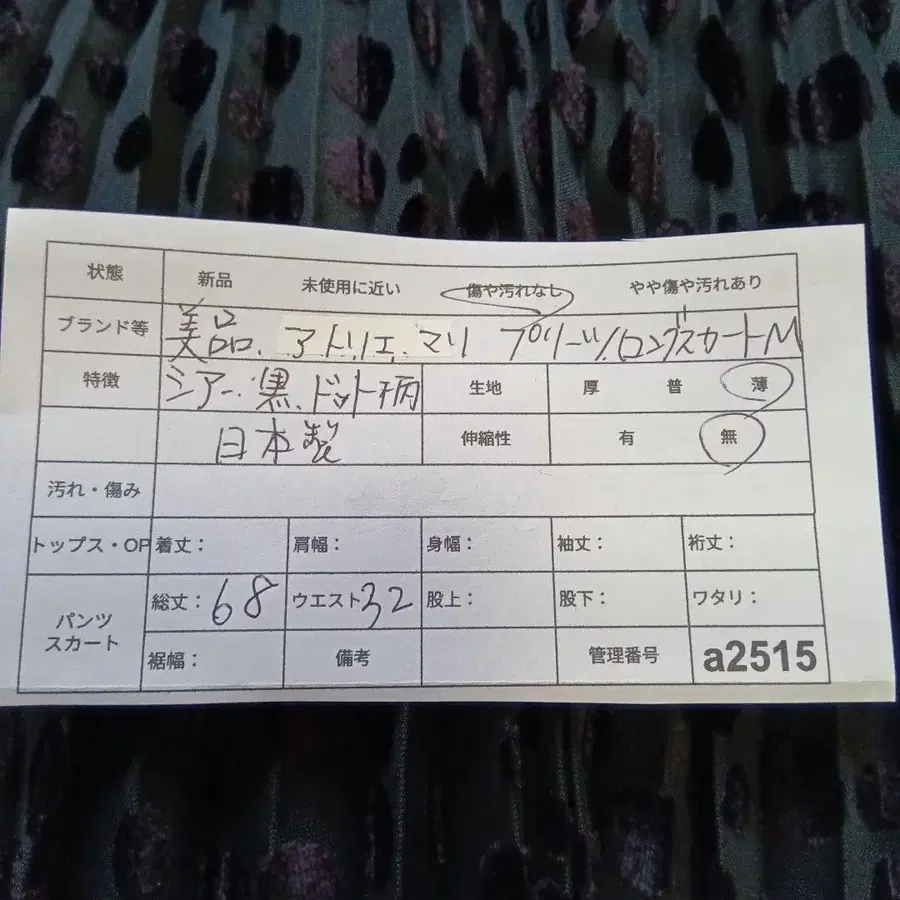 状態 新品 未使用に近い 傷や汚れなし やや傷や汚れあり
ブランド等 美品、アトリエ、マリ プリーツ、ロングスカートM
特徴 シアー、黒、ドット柄 生地 厚 普 薄
日本製 伸縮性 有 無
汚れ・傷み
トップス・OP 着丈: 肩幅: 身幅: 袖丈: 裄丈:
パンツ スカート 総丈:68 ウエスト32 股上: 股下: ワタリ:
裾幅: 備考 管理番号 a2515